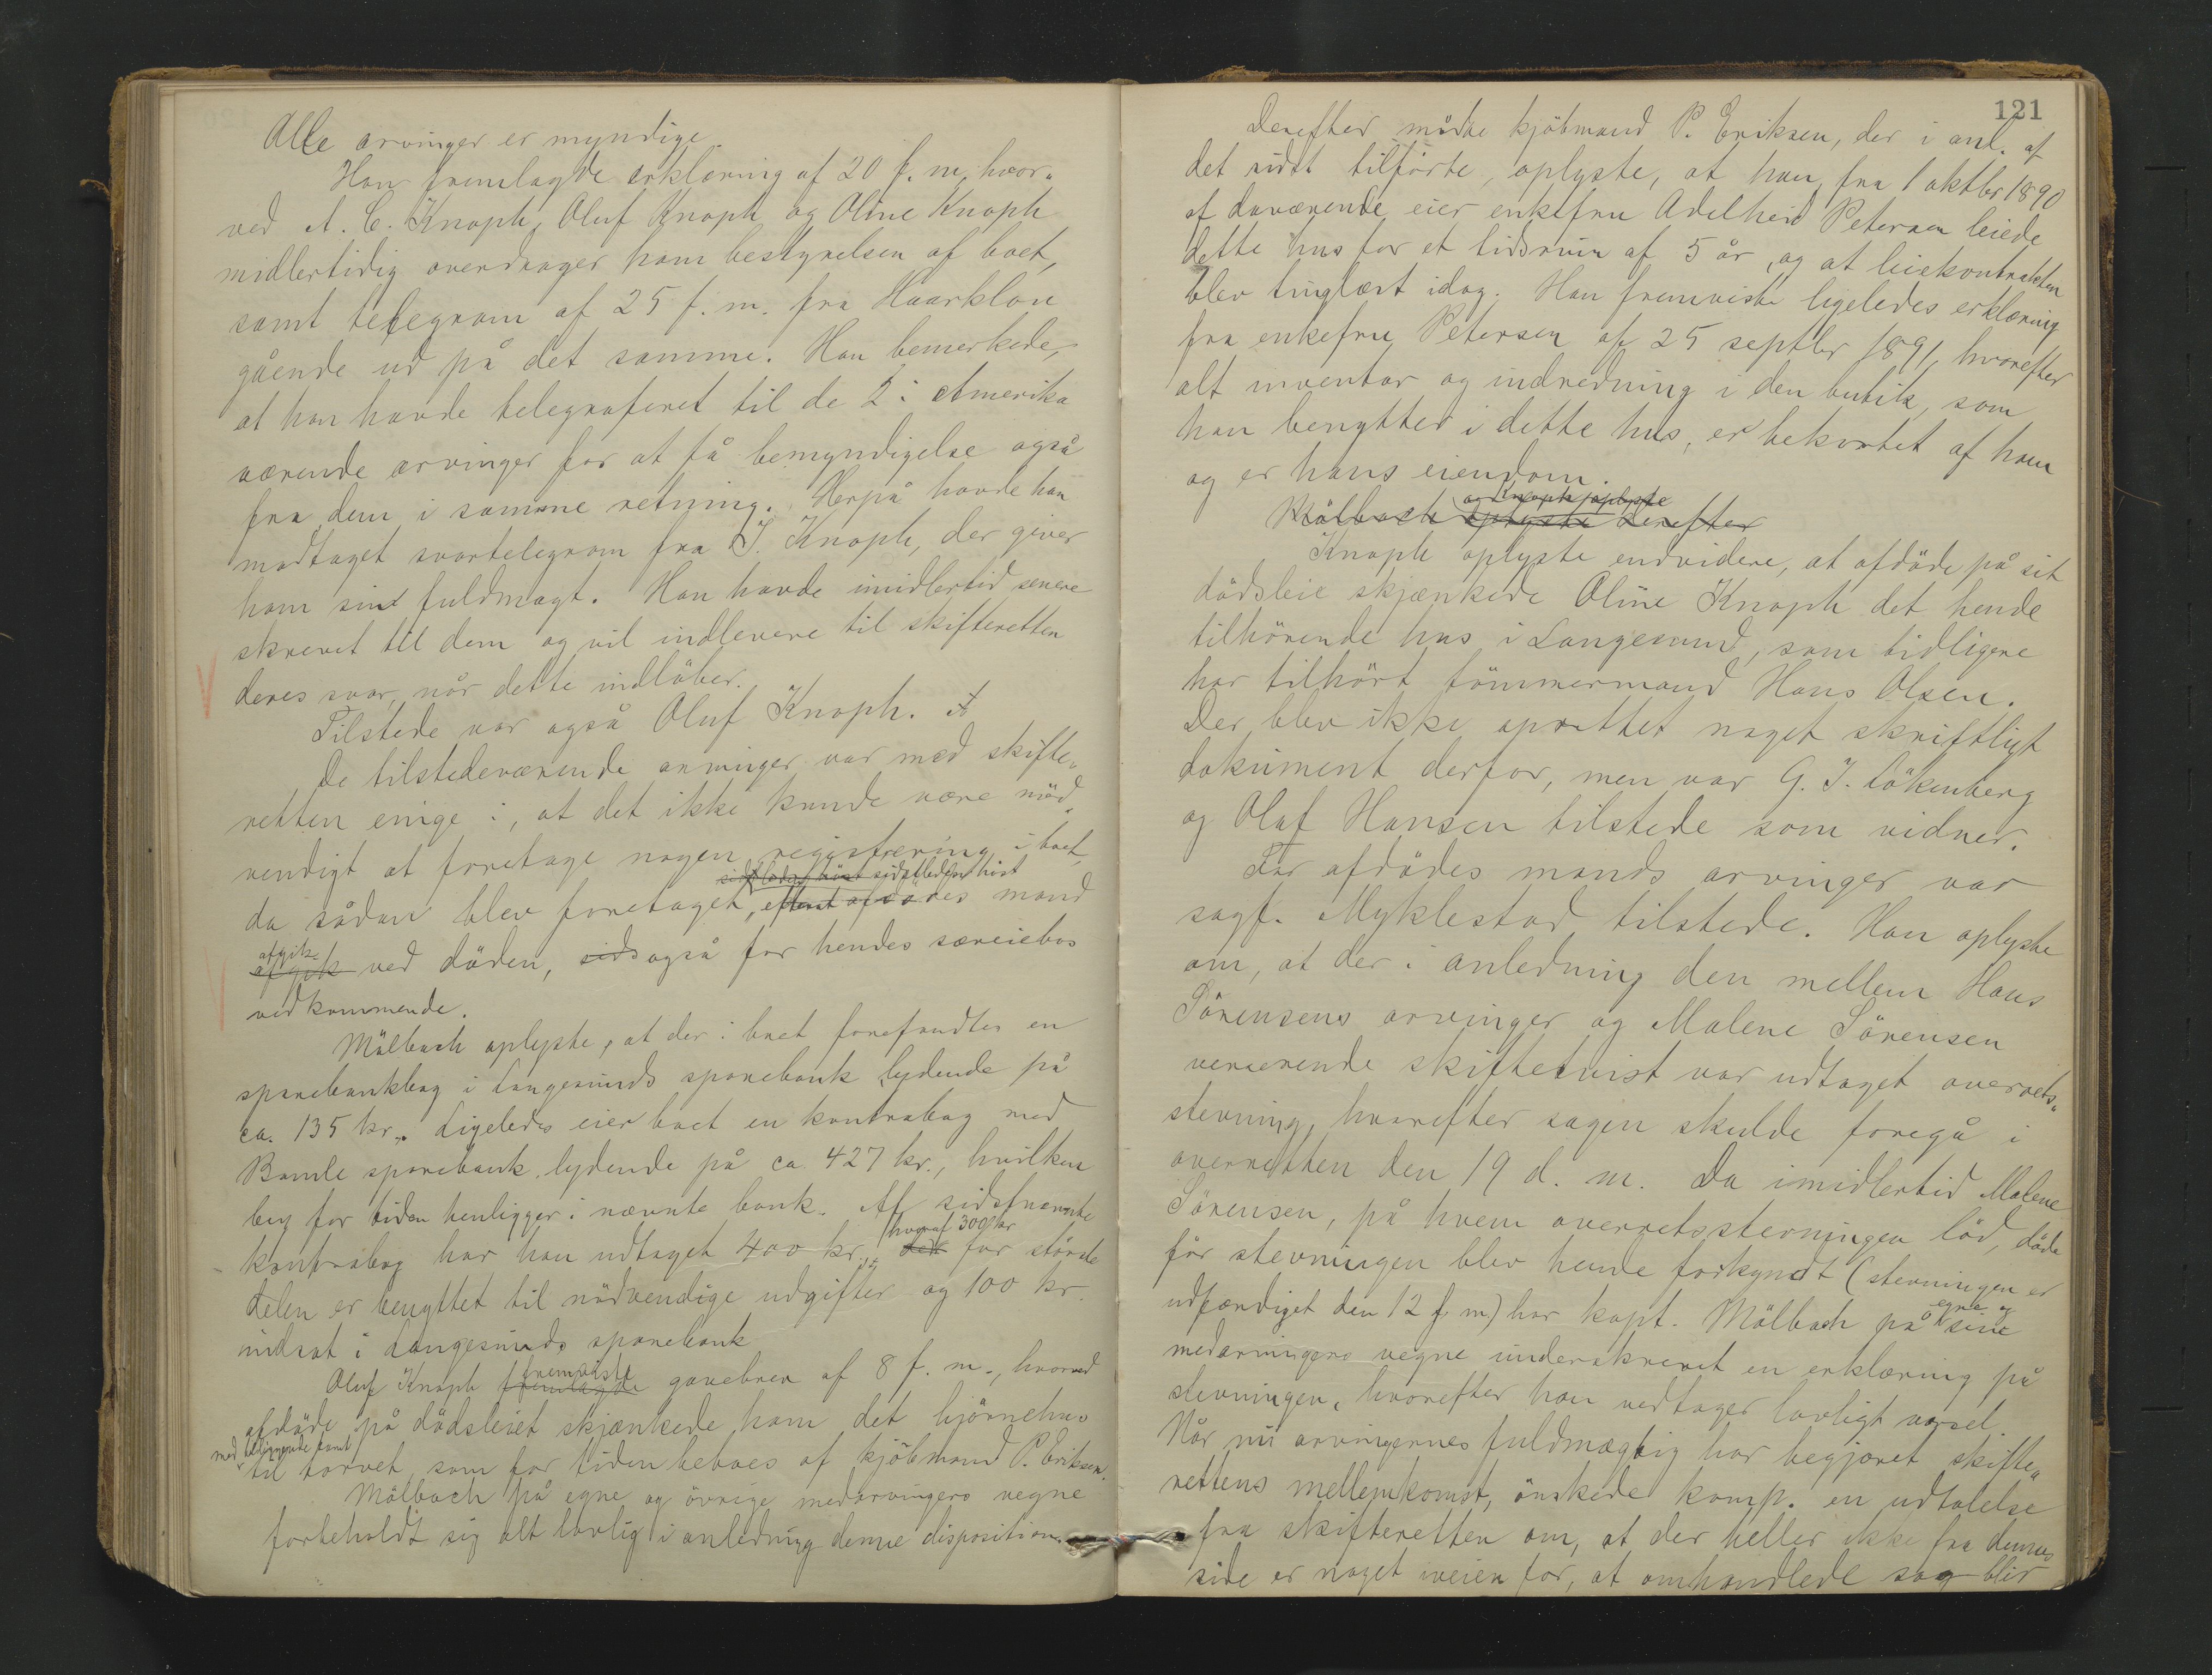 Alle arvinger er myndige.
Han fremlagde erklæring af 20 f. m. hvor-
ved A. C. Knoph, Oluf Knoph og Oline Knoph
midlertidig overdrager ham bestyrelsen af boet,
samt telegram af 25 f. m. fra Haarklou
gående ud på det samme. Han bemerkede,
at han havde telegraferet til de 2 i Amerika
værende arvinger for at få bemyndigelse også
fra dem i samme retning. Herpå havde han
modtaget svartelegram fra J. Knoph, der giver
ham sin fuldmagt. Han havde imidlertid senere
skrevet til dem og vil indlevere til skifteretten
deres svar, når dette indlöber.
Tilstede var også Oluf Knoph.
De tilstedeværende arvinger var med skifte-
retten enige i, at det ikke kunde være nöd-
vendigt at foretage nogen registrering i boet,
sidstleden höst
da sådan blev foretaget, efterat afdödes mand
afgik
afgik ved döden, også for hendes særeiebos
vedkommende.
Mölbach oplyste, at der i boet forefandtes en
sparebankbog i Langesunds sparebank lydende på
ca. 135 kr. Ligeledes eier boet en kontrabog med
Bamle sparebank lydende på ca 427 kr., hvilken
bog for tiden henligger i nævnte bank. Af sidstnævnte
hvoraf 300 kr
kontrabog har han udtaget 400 kr., for störste
delen er benyttet til nödvendige udgifter og 100 kr.
indsat i Langesunds sparebank
fremviste
Oluf Knoph fremlagde gavebrev af 8 f. m., hvorved
afdöde på dödsleiet skjænkede ham det hjörnehus
med tilliggende tomt
til torvet, som for tiden beboes af kjöbmand P. Eriksen.
Mölbach på egne og övrige medarvingers vegne
forbeholdt sig alt lovlig i anledning denne disposition.
121
Derefter mödte kjöbmand P. Eriksen, der i anl. af
det sidst tilförte, oplyste, at han fra 1 oktbr 1890
af daværende eier enkefru Adelheid Petersen leiede
dette hus for et tidsrum af 5 år, og at leiekontrakten
blev tinglæst idag. Han fremviste ligeledes erklæring
fra enkefru Petersen af 25 septbr 1891, hvorefter
alt inventar og indredning i den butik, som
han benytter i dette hus, er bekostet af ham
og er hans eiendom.
og Knoph oplyste
Mölbach oplyste derefter
Knoph oplyste endvidere, at afdöde på sit
dödsleie skjænkede Oline Knoph det hende
tilhörende hus i Langesund, som tidligere
har tilhört tömmermand Hans Olsen.
Der blev ikke oprettet noget skriftligt
dokument derfor, men var G. J. Lökenberg
og Olaf Hansen tilstede som vidner.
For afdödes mands arvinger var
sagf. Myklestad tilstede. Han oplyste
om, at der i anledning den mellem Hans
Sörensens arvinger og Malene Sörensen
verserende skiftetvist var udtaget overrets-
stevning, hvorefter sagen skulde foregå i
overretten den 19 d. m. Da imidlertid Malene
Sörensen, på hvem overretsstevningen löd, döde
för stevningen blev hende forkyndt (stevningen er
egne og
udfærdiget den 12 f. m) har kapt. Mölbach på sine
medarvingers vegne underskrevet en erklæring på
stevningen, hvorefter han vedtager lovligt varsel.
Når nu arvingernes fuldmægtig har begjæret skifte-
rettens mellemkomst, önskede komp. en udtalelse
fra skifteretten om, at der heller ikke fra dennes
side er noget iveien for, at omhandlede sag blir